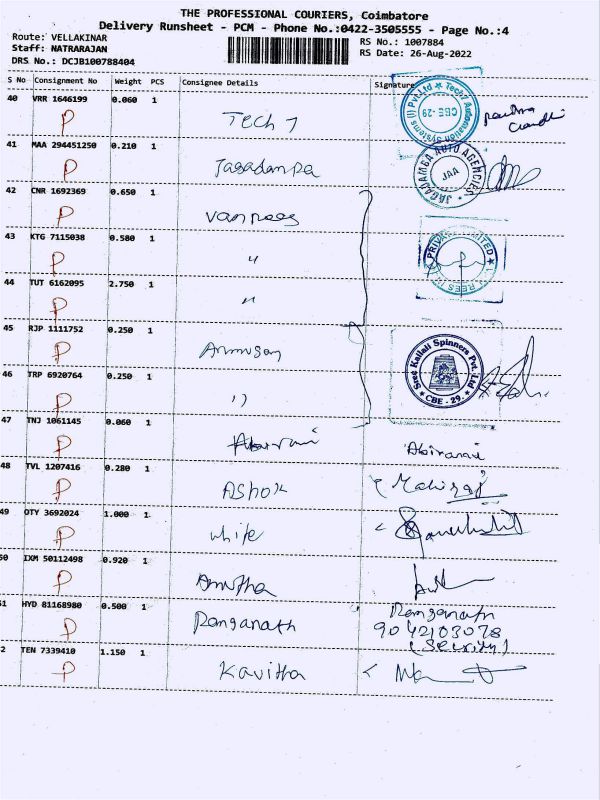 THE PROFESSIONAL COURIERS, Coimbatore
Delivery Runsheet - PCM - Phone No.:0422-3505555 - Page No.:4
Route: VELLAKINAR
RS No.: 1007884
Staff: NATRARAJAN
RS Date: 26-Aug-2022
DRS No.: DCJB100788404
S No Consignment No Weight PCS Consignee Details Signature
40 VRR 1646199 0.060 1
P Tech 7
Tech7 Automation Systems (I) Pvt Ltd CBE-29
41 MAA 294451250 0.210 1
P Jagadampa
JAGADAMBA AUTO AGENCIES JAA
42 CNR 1692369 0.650 1
P
43 KTG 7115038 0.580 1
P "
PRIVATE LIMITED
44 TUT 6162095 2.750 1
P "
45 RJP 1111752 0.250 1
P
46 TRP 6920764 0.250 1
P ''
Sree Kailali Spinners Pvt. Ltd CBE - 29.
47 TNJ 1061145 0.060 1
P Abirami Abirami
48 TVL 1207416 0.280 1
P Ashok
49 OTY 3692024 1.000 1
P white
50 IXM 50112498 0.920 1
P Amutha
51 HYD 81168980 0.500 1
P Ranganath Ranganath
9042103078
(Security)
2 TEN 7339410 1.150 1
P Kavitha